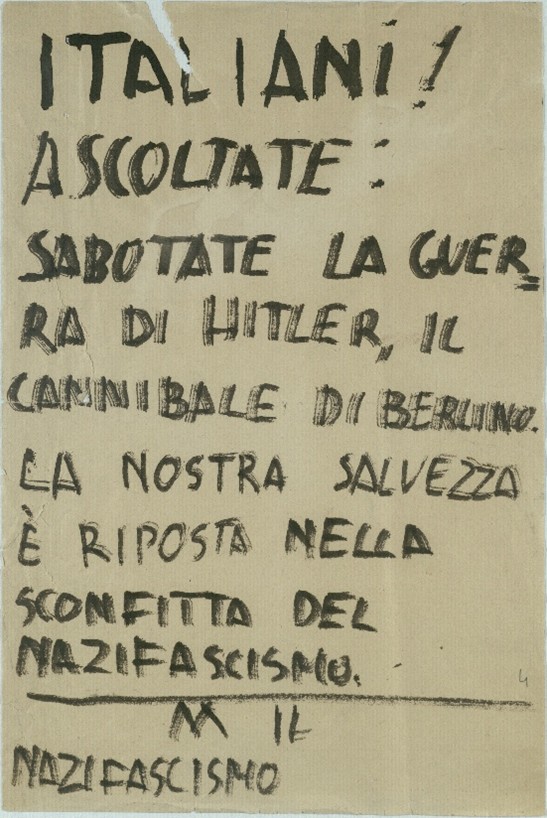 ITALIANI!
ASCOLTATE:
SABOTATE LA GUER=
RA DI HITLER, IL
CANNIBALE DI BERLINO.
LA NOSTRA SALVEZZA
È RIPOSTA NELLA
SCONFITTA DEL
NAZIFASCISMO.
4
M IL
NAZIFASCISMO